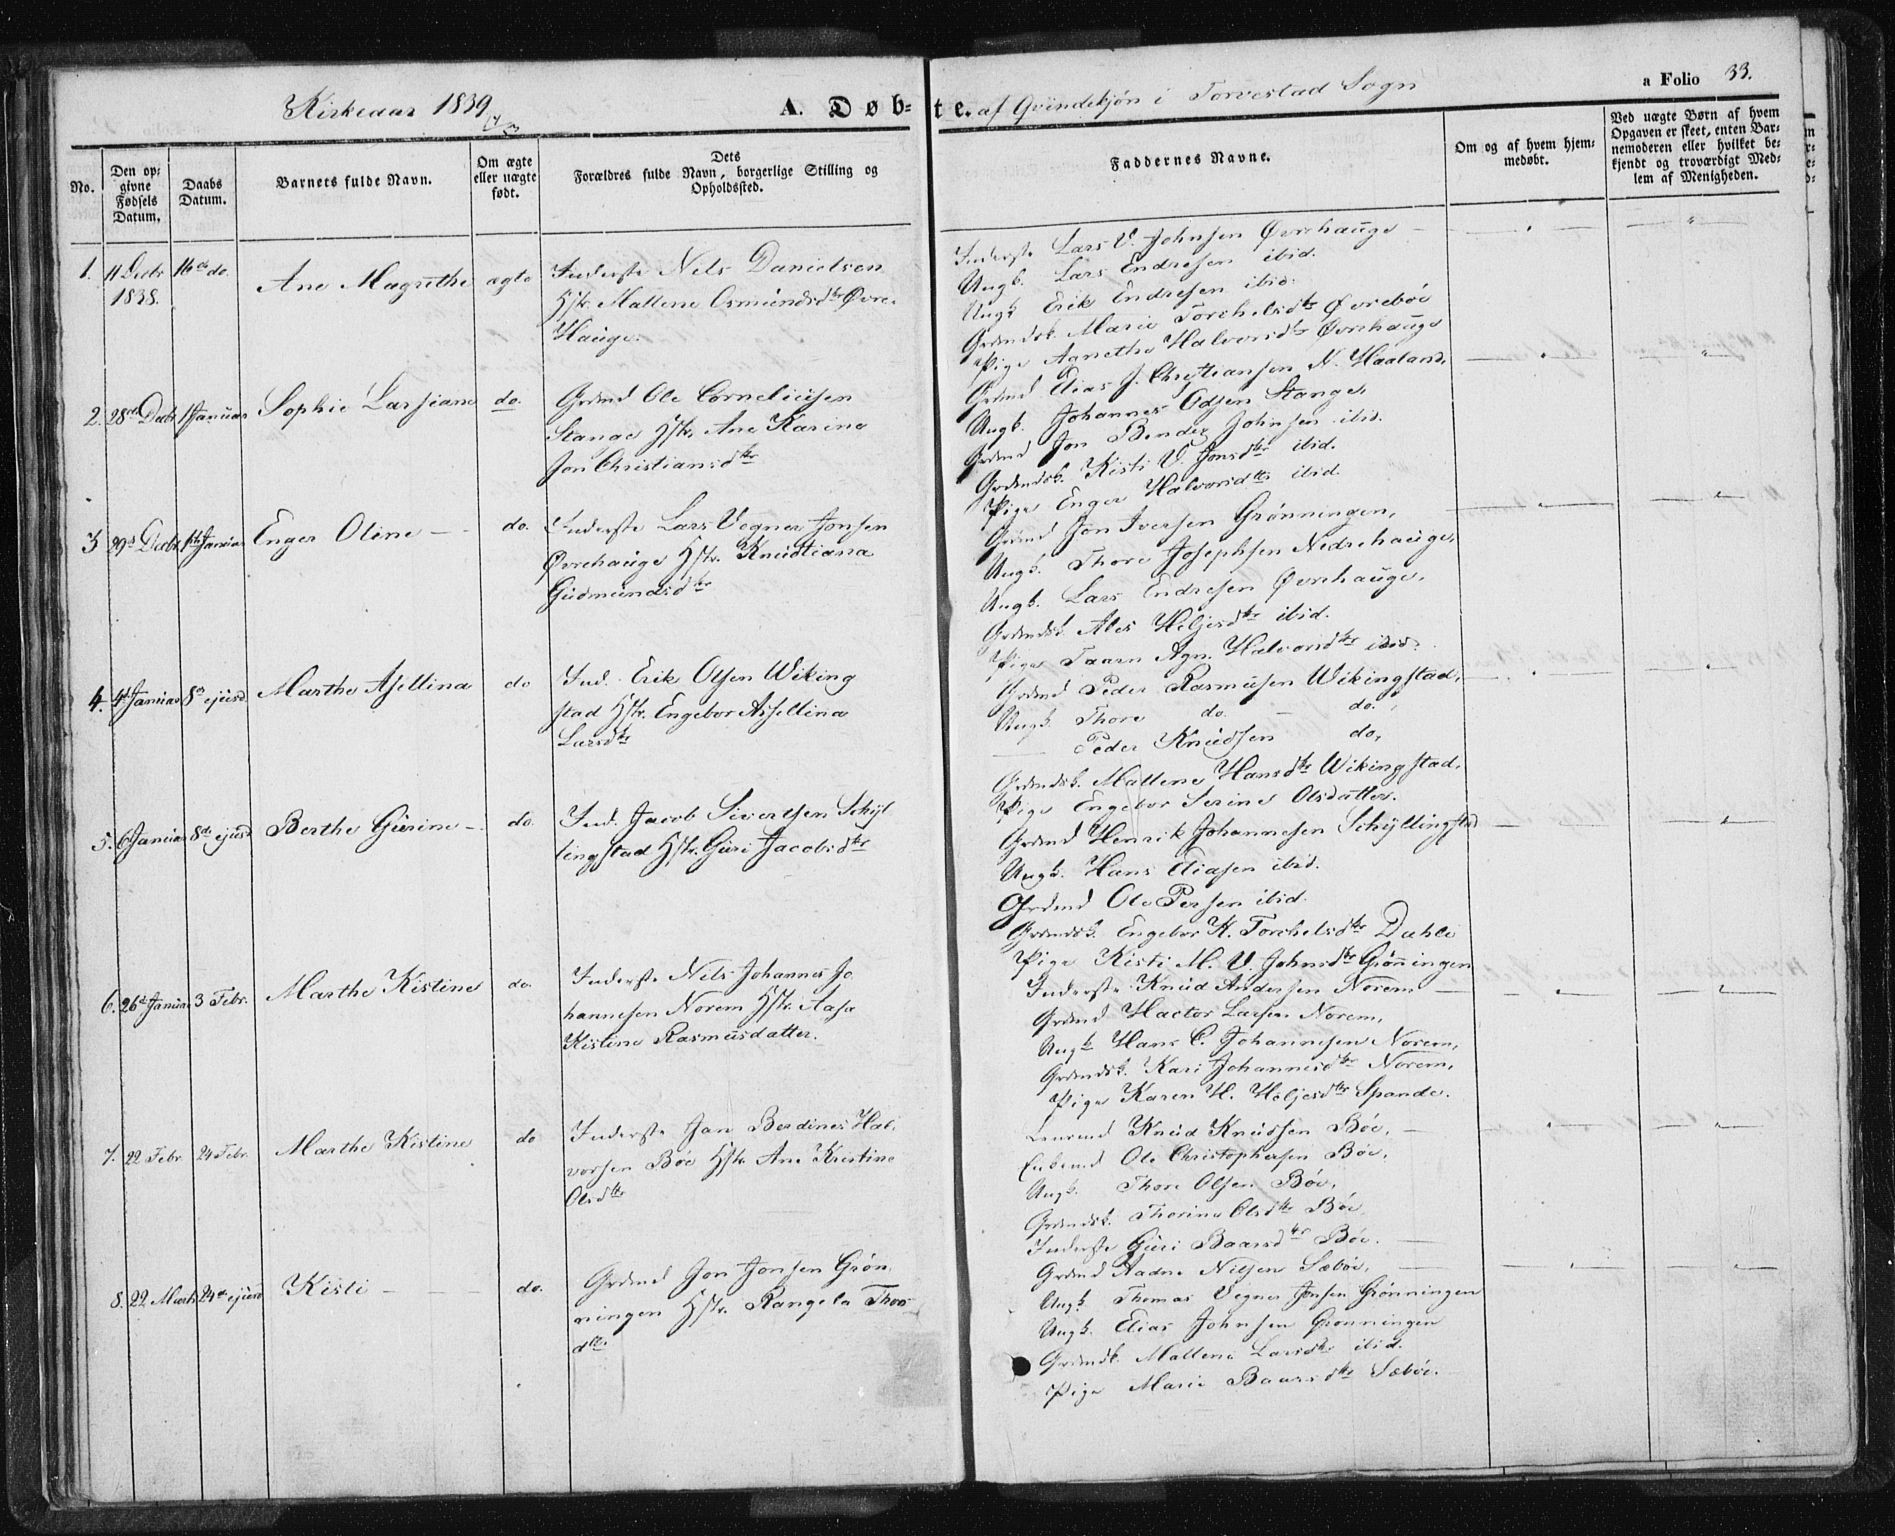 Kirkeaar 1839
A. Døb-
te. af Qvindekjøn i Torvestad Sogn
a Folio 33.
No.
Den op-
givne
Fødsels
Datum.
Daabs
Datum.
Barnets fulde Navn.
Om ægte
eller uægte
født.
Dets
Forældres fulde Navn, borgerlige Stilling og
Opholdssted.
Faddernes Navne.
Om og af hvem hjem-
medøbt.
Ved uægte Børn af hvem
Opgaven er skeet, enten Bar-
nemoderen eller hvilket be-
kjendt og troværdigt Med-
lem af Menigheden.
1. 11 Decbr 16de do. Ane Magrethe ægte Inderste Nels Danielsen
1838. Hstr. Mallene Osmundsdtr Øvre-
Hauge.
Inderste Lars V. Johnsen Øvrehauge
Ungk. Lars Endresen ibid.
Ungk Erik Endresen ibid.
Grdmdsk. Marie Torchelsdtr Øvrebøe
Pige Agnethe Halvorsdtr Øvrehauge
2. 28de Decbr 1 Januar Sophie Larsiane do. Grdmd Ole Corneliusen
Stange Hstr. Ane Karine
Jon Christiansdtr
Grdmd Elias J. Christiansen N. Haaland,
Ungk. Johannes Odsen Stange,
Grdmd Jon Bender Johnsen ibid.
Grdmdsk. Kisti V. Jonsdtr ibid.
Pige Enger Halvorsdtr ibid
3 29d Decbr 1ste Januar Enger Oline do. Inderste Lars Vegner Jonsen
Øvrehauge Hstr. Knudtiana
Gudmundsdtr
Grdmd Jon Iversen Grønningen,
Ungk. Thore Josephsen Nedrehauge,
Ungk. Lars Endresen Øvrehauge,
Grdmdsk. Ales Heljesdtr ibid.
Pige Taarn Agn. Halvorsdtr ibid.
4. 4d Januar 8d ejusd. Marthe Asellina do Ind. Erik Olsen Wiking
stad Hstr. Engebor Assellina
Larsdtr
Grdmd Peder Rasmusen Wikingstad,
Ungk. Thore do. – do.
— Peder Knudsen do,
Grdmdsk. Mallene Hansdtr Wikingstad,
Pige Engebor Serine Olsdatter.
5. 6 Januar 8d ejusd Berthe Gurine – do. Ind. Jacob Sivertsen Schyl
lingstad Hstr. Guri Jacobsdtr
Grdmd Henrik Johannesen Schyllingstad
Ungk. Hans Eliasen ibid.
Grdmd Ole Persen ibid.
Grdmdsk. Engebor K. Torchelsdtr Duhle
Pige Kisti M. V. Johnsdtr Grønningen
6. 26d Januar 3 Febr. Marthe Kistine do. Inderste Nels Johannes Jo
hannesen Norem Hstr. Aasa
Kistine Rasmusdatter.
Inderste Knud Andersen Norem
Grdmd Hactor Larsen Norem,
Ungk Hans C. Johannesen Norem,
Grdmdsk. Kari Johannesdtr Norem,
Pige Karen H. Heljesdtr Spande.
7. 22 Febr. 24 Febr. Marthe Kistine do Inderste Jan Berdines Hal,
vorsen Bøe Hstr Ane Kristine
Olsdtr
Knud Knudsen Bøe,
Ole Christophersen Bøe,
Ungk. Thore Olsen Bøe,
Grdmdsk. Thorine Olsdtr Bøe
Inderste Guri Baarsdtr Bøe.
8. 22 Marts 24de ejusd Kisti – do. Grdmd Jon Jonsen Grøn,
ningen Hstr. Rangela Thors
dtr.
Grdmd Aadne Nilsen Sæbøe,
Ungk Thomas Vegner Jonsen Grønningen
Ungk. Elias Johnsen Grønningen
Grdmdk. Mallene Larsdtr ibid.
Pige Marie Baarsdtr Sæbøe.